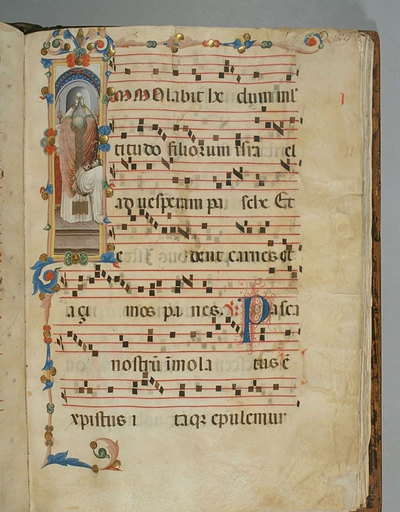 MMOlabit hedum mul
titudo filiorum isra el
ad uesperam pa sche Et
e dent carnes et
açi mos pa nes. Pasca
nostrũ ĩmola tus ẽ
xpistus i taqꝫ epulemur